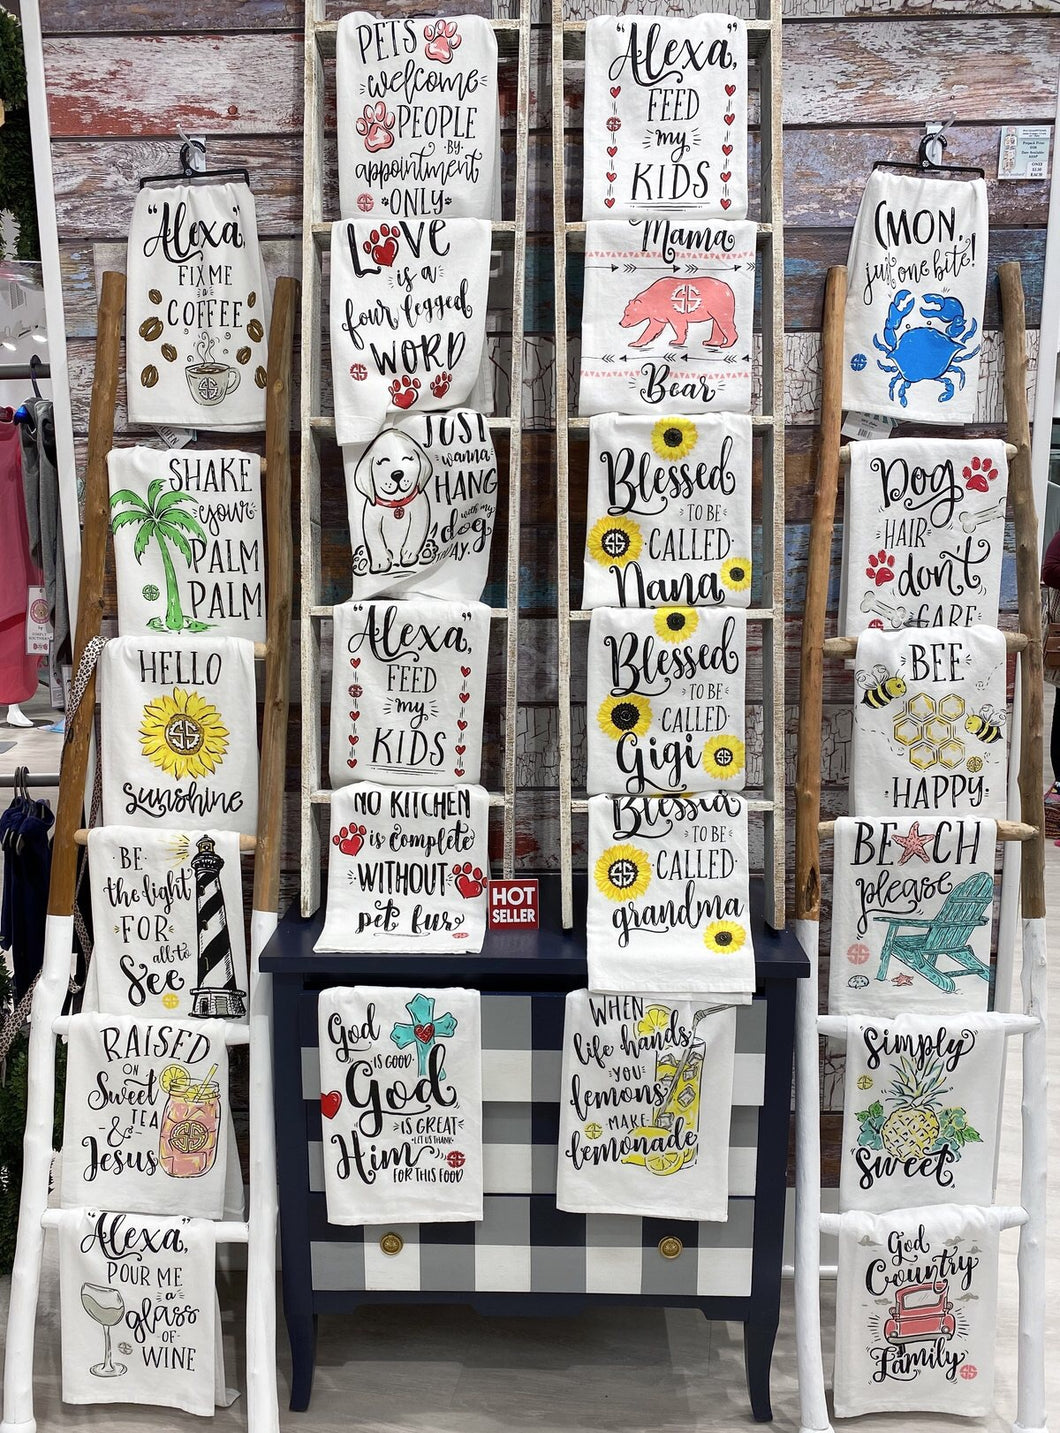 "Alexa,
FIX ME
a
COFFEE
SHAKE
your
PALM
PALM
HELLO
SS
sunshine
BE
the light
FOR
all to
See
RAISED
ON
Sweet
TEA
&
Jesus
"Alexa,
POUR ME
a
glass
OF
WINE
PETS
welcome
PEOPLE
BY
appointment
ONLY
LOVE
is a
four legged
WORD
JUST
wanna
HANG
with my
dog
"Alexa,"
FEED
my
KIDS
NO KITCHEN
is complete
WITHOUT
pet fur
HOT
SELLER
God
IS GOOD
God
IS GREAT
LET US THANK
Him
FOR THIS FOOD
"Alexa,"
FEED
my
KIDS
Mama
SS
Bear
Blessed
TO BE
SS
CALLED
Nana
Blessed
TO BE
CALLED
Gigi
SS
Blessed
TO BE
CALLED
SS
grandma
WHEN
life hands
YOU
lemons
MAKE
lemonade
C'MON,
just one bite!
DOG
HAIR
don't
CARE
BEE
HAPPY
BEACH
please
Simply
Sweet
God
Country
Family